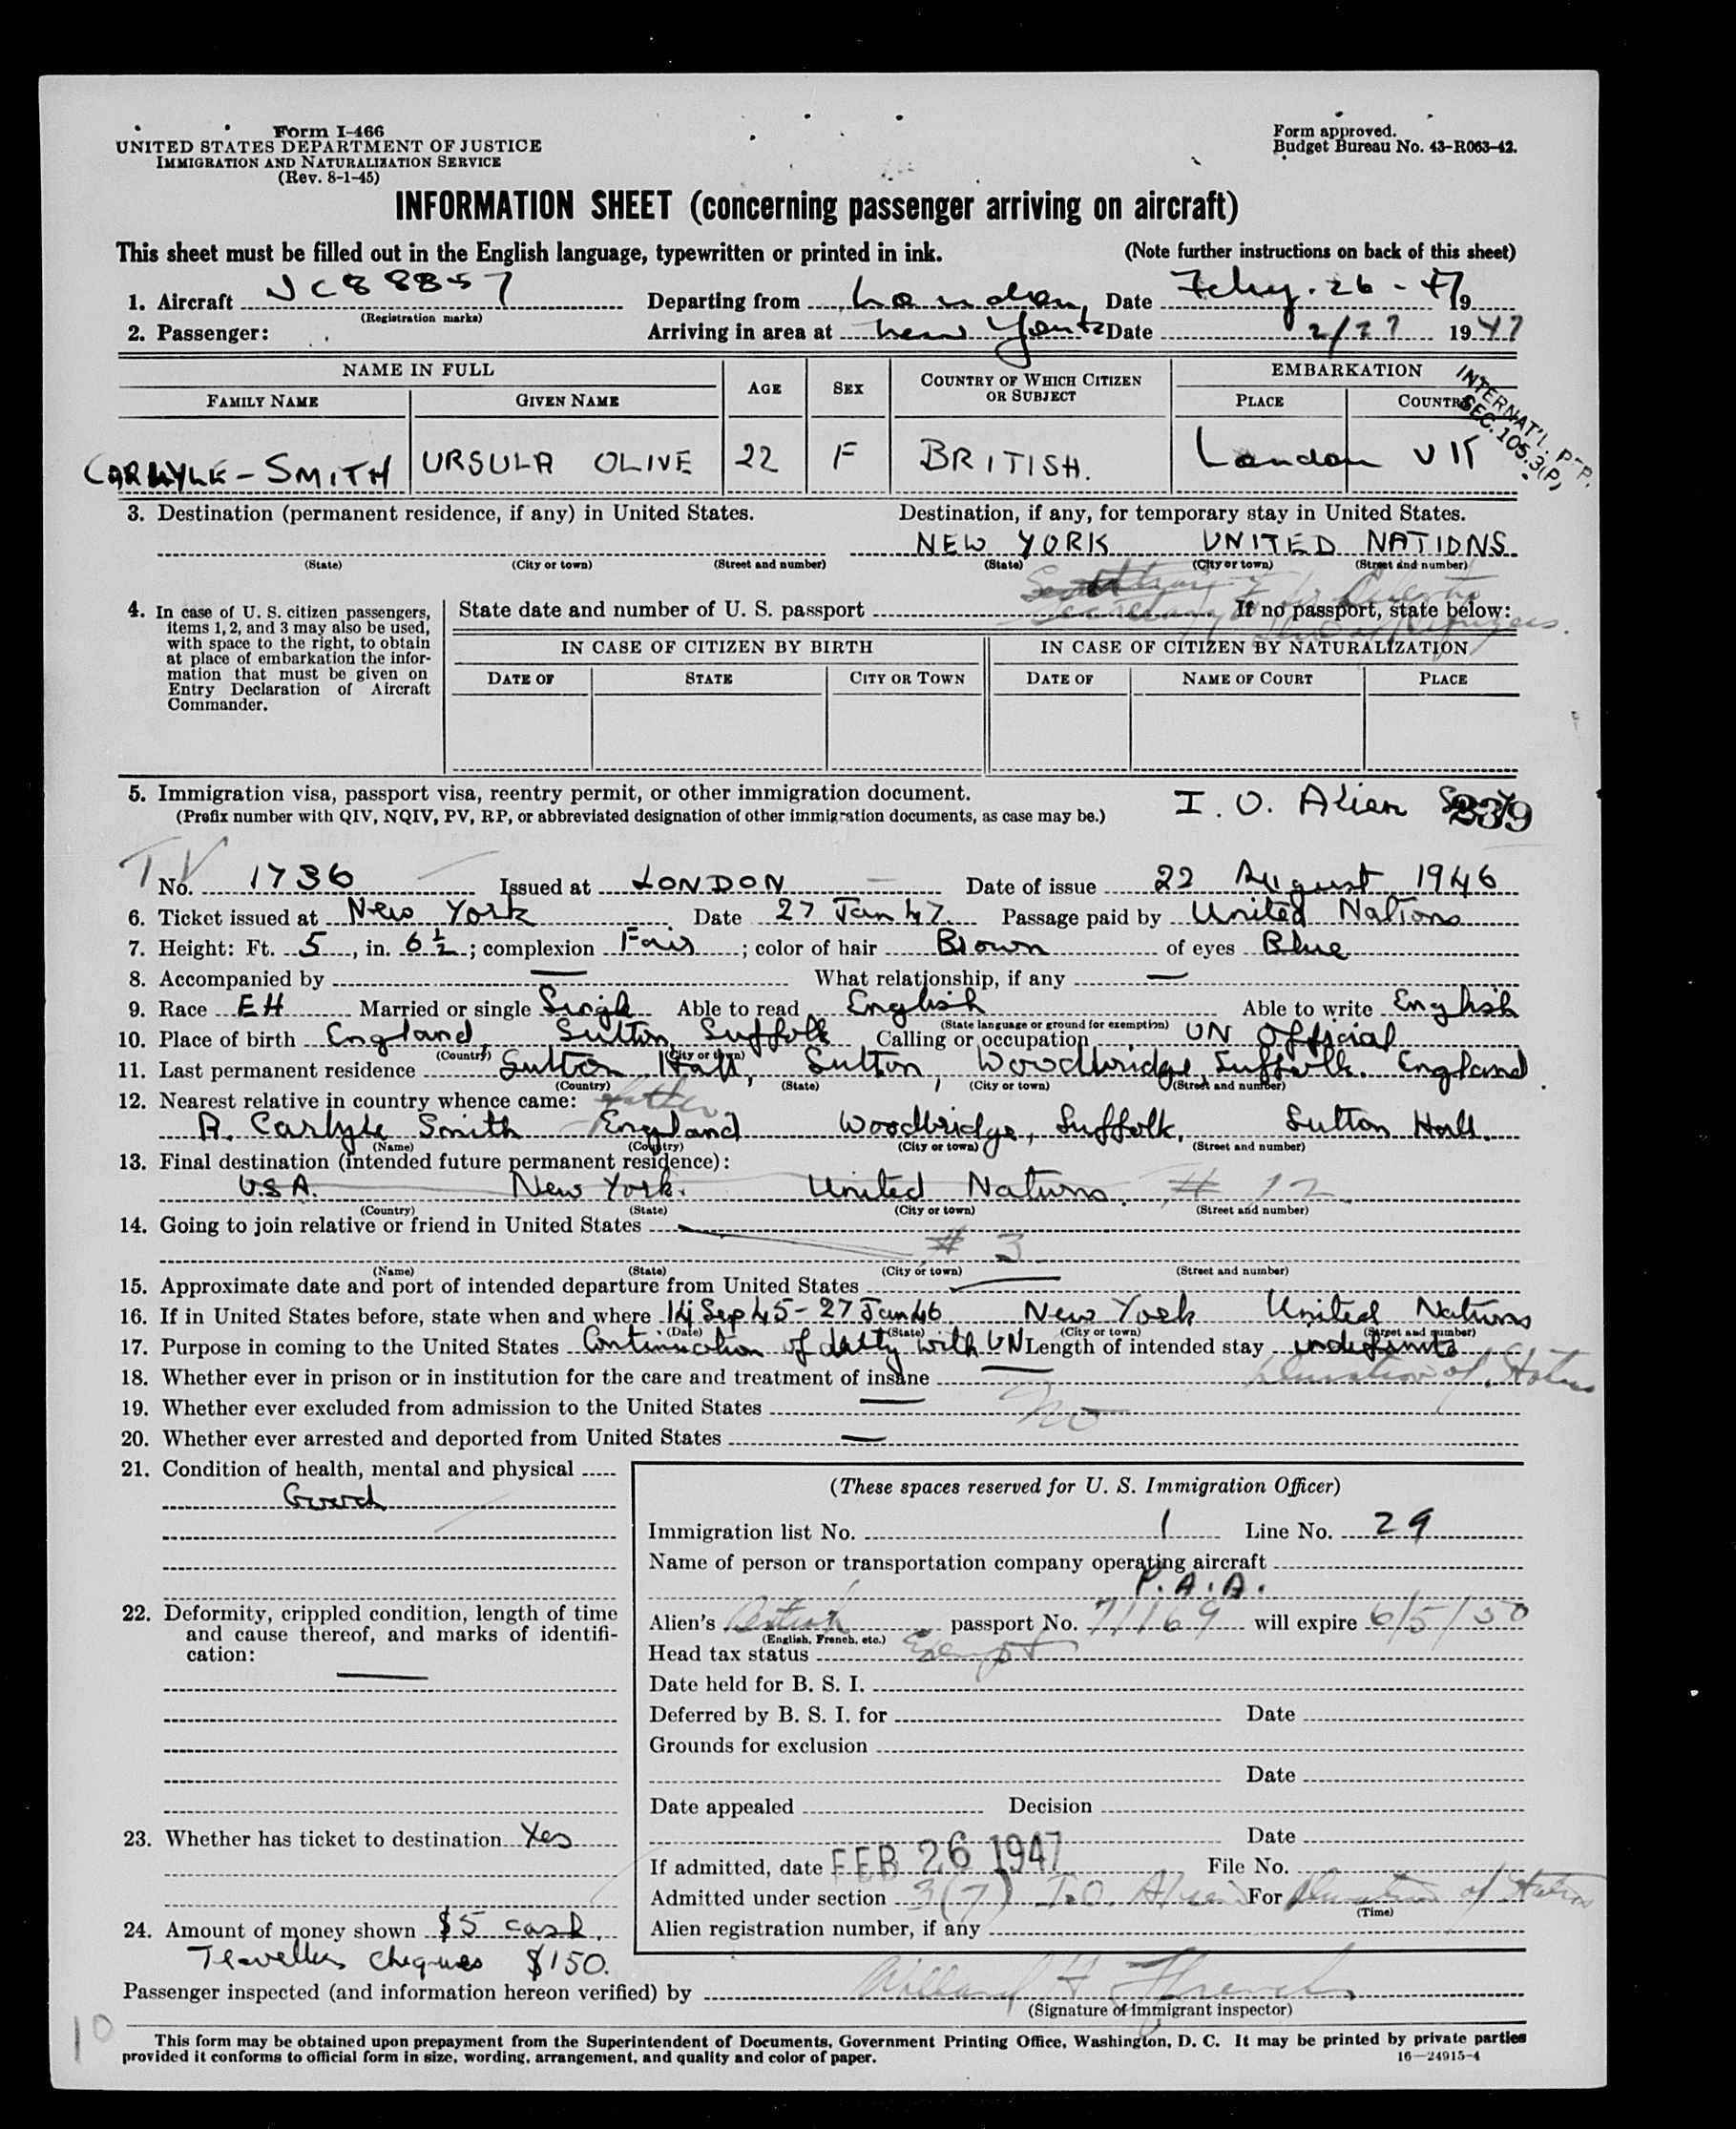 Form I-466
UNITED STATES DEPARTMENT OF JUSTICE
IMMIGRATION AND NATURALIZATION SERVICE
(Rev. 8-1-45)
Form approved.
Budget Bureau No. 43-R063-42.
INFORMATION SHEET (concerning passenger arriving on aircraft)
This sheet must be filled out in the English language, typewritten or printed in ink. (Note further instructions on back of this sheet)
1. Aircraft NC88857 Departing from London Date Feby. 26-47 19
(Registration marks)
2. Passenger: Arriving in area at New York Date 2/27 1947
NAME IN FULL AGE SEX COUNTRY OF WHICH CITIZEN OR SUBJECT EMBARKATION
FAMILY NAME GIVEN NAME PLACE COUNTRY
INTERNAT'L.
SEC. 105.3(P)
CARLYLE-SMITH URSULA OLIVE 22 F BRITISH. London UK
3. Destination (permanent residence, if any) in United States. Destination, if any, for temporary stay in United States.
NEW YORK UNITED NATIONS
(State) (City or town) (Street and number) (State) (City or town) (Street and number)
4. In case of U. S. citizen passengers, items 1, 2, and 3 may also be used, with space to the right, to obtain at place of embarkation the information that must be given on Entry Declaration of Aircraft Commander.
State date and number of U. S. passport If no passport, state below:
Secretary
IN CASE OF CITIZEN BY BIRTH IN CASE OF CITIZEN BY NATURALIZATION
DATE OF STATE CITY OR TOWN DATE OF NAME OF COURT PLACE
5. Immigration visa, passport visa, reentry permit, or other immigration document. I.O. Alien 239
(Prefix number with QIV, NQIV, PV, RP, or abbreviated designation of other immigration documents, as case may be.)
TV
No. 1736 Issued at LONDON Date of issue 22 August 1946
6. Ticket issued at New York Date 27 Jan 47. Passage paid by United Nations
7. Height: Ft. 5, in. 6½; complexion Fair; color of hair Brown of eyes Blue
8. Accompanied by — What relationship, if any —
9. Race EH Married or single Single Able to read English Able to write English
(State language or ground for exemption)
10. Place of birth England, Sutton, Suffolk Calling or occupation UN Official
(Country) (City or town)
11. Last permanent residence Sutton Hall, Sutton, Woodbridge, Suffolk. England.
(Country) (State) (City or town) (Street and number)
12. Nearest relative in country whence came: father
A. Carlyle Smith England Woodbridge, Suffolk, Sutton Hall.
(Name) (Country) (City or town) (Street and number)
13. Final destination (intended future permanent residence):
U.S.A. New York. United Nations. # 12
(Country) (State) (City or town) (Street and number)
14. Going to join relative or friend in United States
# 3
(Name) (State) (City or town) (Street and number)
15. Approximate date and port of intended departure from United States
16. If in United States before, state when and where 14 Sep 45 - 27 Jan 46 New York United Nations
(Date) (State) (City or town) (Street and number)
17. Purpose in coming to the United States Continuation of duty with UN Length of intended stay indefinite
Duration of Status
18. Whether ever in prison or in institution for the care and treatment of insane —
19. Whether ever excluded from admission to the United States — No
20. Whether ever arrested and deported from United States —
21. Condition of health, mental and physical
Good
22. Deformity, crippled condition, length of time and cause thereof, and marks of identification:
—
23. Whether has ticket to destination Yes
24. Amount of money shown $5 cash,
Travellers cheques $150.
(These spaces reserved for U. S. Immigration Officer)
Immigration list No. 1 Line No. 29
Name of person or transportation company operating aircraft
P.A.A.
Alien's British passport No. 71169 will expire 6/5/50
(English, French, etc.)
Head tax status Exempt
Date held for B. S. I.
Deferred by B. S. I. for Date
Grounds for exclusion
Date
Date appealed Decision
Date
If admitted, date FEB 26 1947 File No.
Admitted under section 3(7) I.O. Alien For Duration of Status
(Time)
Alien registration number, if any
Passenger inspected (and information hereon verified) by Willard H French
(Signature of immigrant inspector)
10
This form may be obtained upon prepayment from the Superintendent of Documents, Government Printing Office, Washington, D. C. It may be printed by private parties
provided it conforms to official form in size, wording, arrangement, and quality and color of paper. 16—24915-4